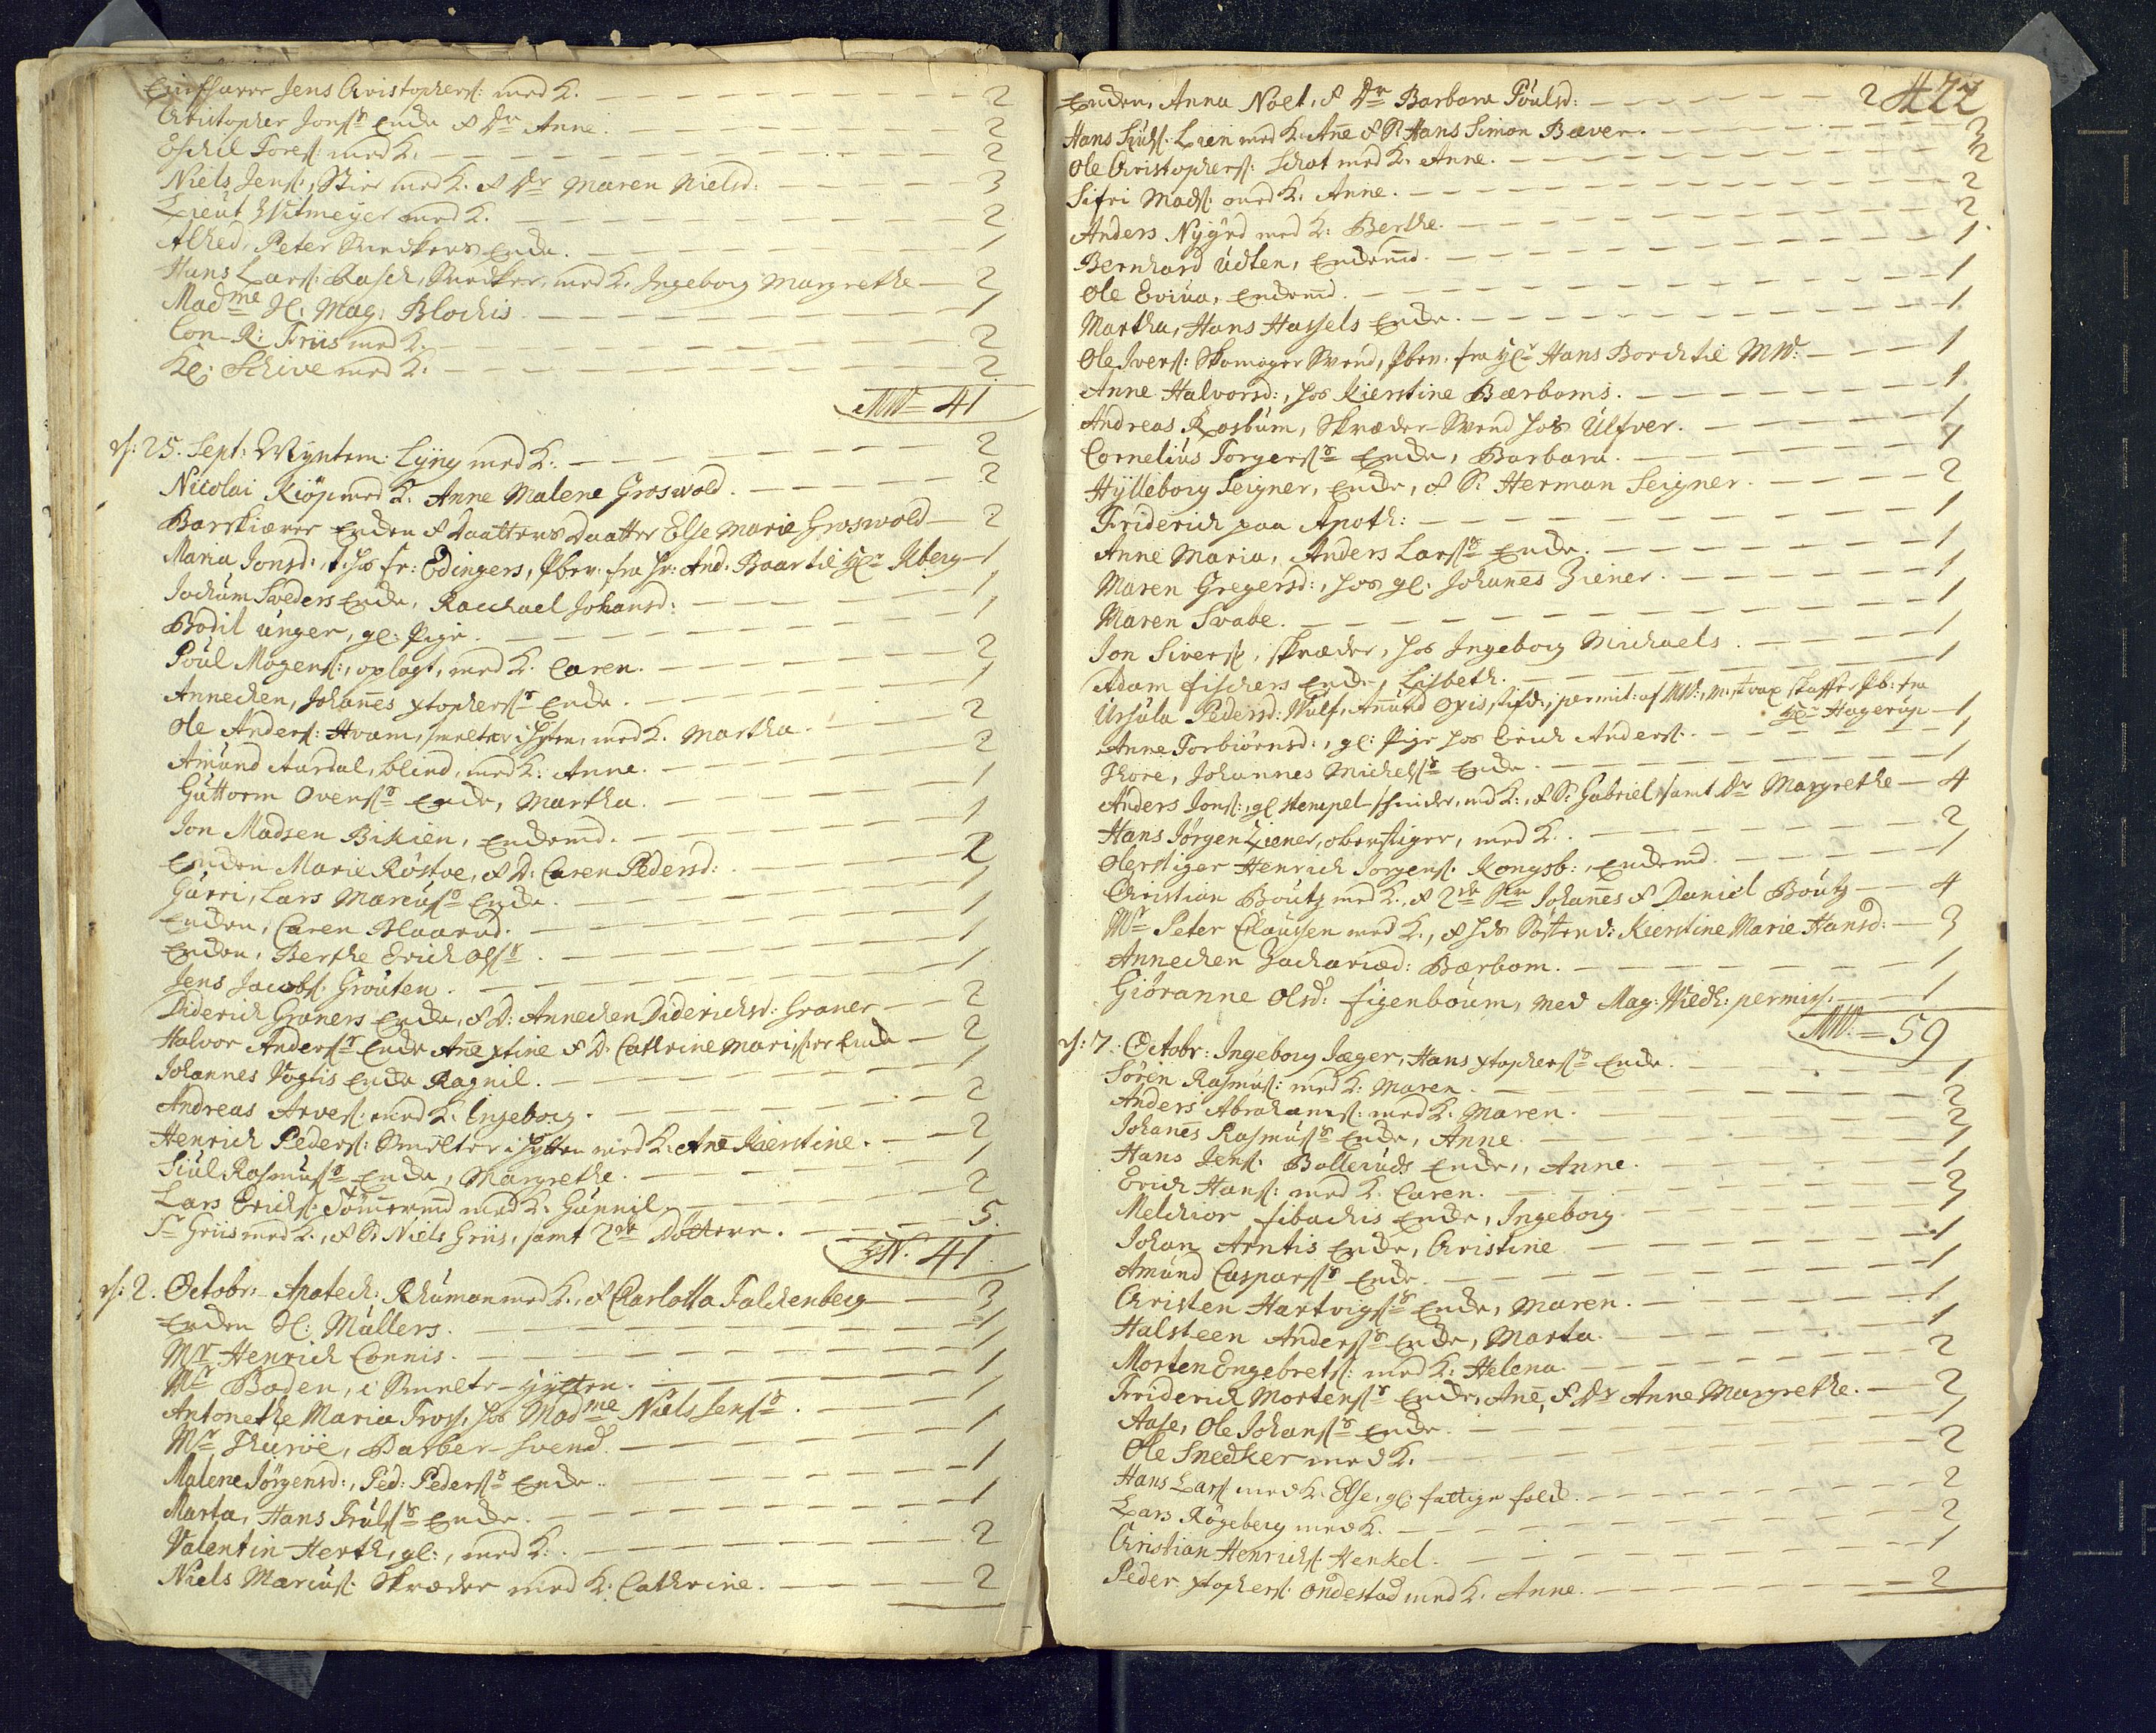 Jens Christophers: med K. 2
Christopher Jonss Encke & Dr Anne. 2
Eschil Tores: med K. 2
Niels Jens:, Stier med K. & Dr Maren Nielsd: 3
Lieut Witmeyer med K. 2
Alhed, Peter Snedkers Encke. 1
Hans Lars: Rasch, Snedker, med K. Ingeborg Margrethe 2
Madme Sl: Mag: Blochis. 1
Con-R: Friis med K. 2
Kl: Schive med K. 2
MW = 41
d: 25. Sept: Myntem: Lyng med K. 2
Nicolai Kiöp med K. Anne Malene Groswold. 2
Barskiærer Encken & Daatters Daatter Else Marie Groswold 2
Maria Jonsd:, t. hos Fr: Edingers, fra Hr: And. Baar til Hr Kberg 1
Jochum Sveders Encke, Rachael Johansd: 1
Bodil Unger, gl: Pige. 1
Poul Mogens:, oplagt, med K. Caren. 2
Annechen, Johannes xtopherss Encke. 1
Ole Anders: Hvam, smelter i Hytten, med K. Martha. 2
Amund Aurdal, blind, med K. Anne. 2
Guttorm Ovenss Encke, Martha. 1
Jon Madsen Bikien, Enckemd. 1
Encken Marie Röstve, & D: Caren Pedersd: 2
Gurri, Lars Marcuss Encke. 1
Encken, Caren Blaarud. 1
Encken, Berthe Erich Olss. 1
Jens Jacobs: Grouten. 1
Diderich Graners Encke, & D: Annechen Diderichsd: Graner 2
Halvor Anderss Encke Ane xtine & D: Cathrine Encke 2
Johannes Vogtis Encke Ragnil. 1
Andreas Arves: med K. Ingeborg. 2
Henrich Peders: Smelter i Hytten med K. Ane Kierstine. 2
Siul Rasmuss Encke, Margrethe. 1
Lars Erichs: Tömermd med K: Gunnil. 2
Sr Griis med K., & S. Niels Griis, samt 2de Döttere. 5.
41
d: 2. Octobr: Apotech: Rhuman med K., & Charlotta Falckenberg 3
Encken Sl: Müllers. 1
Mr Henrich Connis. 1
Mr Boden, i Smelte-Hytten. 1
Antonethe Maria Tross, hos Madme Niels Jenss. 1
Mr Thuröe, Barber-Svend. 1
Malene Jörgensd:, Ped: Pederss Encke. 1
Marta, Hans Trulss Encke. 1
Valentin Herth, gl:, med K. 2
Niels Marcus: Skræder med K: Cathrine. 2
422
Encken, Anna Noet, & Dr Barbara Poulsd: 2
Hans Siuls: Lien med K: Ane & S. Hans Simon Bæver. 3
Ole Christophers: Schot med K. Anne. 2
Sifri Mads: med K. Anne. 2
Anders Nygrd med K: Berthe. 2
Bernhard Udten, Enckemd. 1
Ole Eviua, Enckemd. 1
Martha, Hans Hassels Encke. 1
Ole Ivers: Skomager Svend, fra Hr Hans Borch til MW: 1
Anne Halvorsd:, hos Kierstine Bærboms. 1
Andreas Rosbum, Skræder-Svend hos Ulfver. 1
Cornelius Torgerss Encke, Barbara. 1
Hylleborg Seigner, Encke, & S. Herman Seigner. 2
Friderich paa Apoth: 1
Anne Maria, Anders Larss Encke. 1
Maren Gregersd:, hos gl: Johanes Ziener. 1
Maren Svabe. 1
Jon Sivers:, Skræder, hos Ingeborg Michaels. 1
Adam Fischers Encke, Lisbeth. 1
Ursula Pedersd: Wulf, Amund Opis, permit: af MW:, skaffe fra
Hr Hagerup 1
Anne Torbiörnsd:, gl: Pige hos Erich Anders: 1
Thore, Johannes Michelss Encke. 1
Anders Jons:, gl stempel-schnider, md K:, & S. Gabriel samt Dr Margrethe 4
Hans Jörgen Ziener, oberstiger, med K. 2
Oberstiger Henrich Jorgens: Kongsb:, Enckemd. 1
Christian Boutz med K., & 2de S. Johanes & Daniel Boutz 4
Mr Peter Claussen med K., & hds Söster d: Kierstine Marie Hansd: 3
Annechen Zachariæd: Bærbom. 1
Giöranne Olsd: Figenboum, med Mag: Wiedk: permiss: 1
MW: = 59
d: 7. Octobr: Ingeborg Jæger, Hans xtopherss Encke. 1
Sören Rasmus: med K: Maren. 2
Anders Abrahams: med K. Maren. 2
Johanes Rasmuss Encke, Anne. 1
Hans Jens: Bolleruds Encke, Anne. 1
Erich Hans: med K. Caren. 2
Melchior Fibachis Encke, Ingeborg. 1
Johan Arntis Encke, Christine. 1
Amund Casparss Encke. 1
Christen Hartvigss Encke, Maren. 1
Halsteen Anderss Encke, Marta. 1
Morten Engebrets: med K: Helena. 2
Friderich Mortenss Encke, Ane, & Dr Anne Margrethe. 2
Aase, Ole Johanss Encke. 1
Ole Snedker med K. 2
Hans Lars: med K. Else, gl: fattige folck. 2
Lars Rögeberg med K. 2
Christian Henrichs: Henkel. 1
Peder xtophers: Ondestad med K. Anne. 2